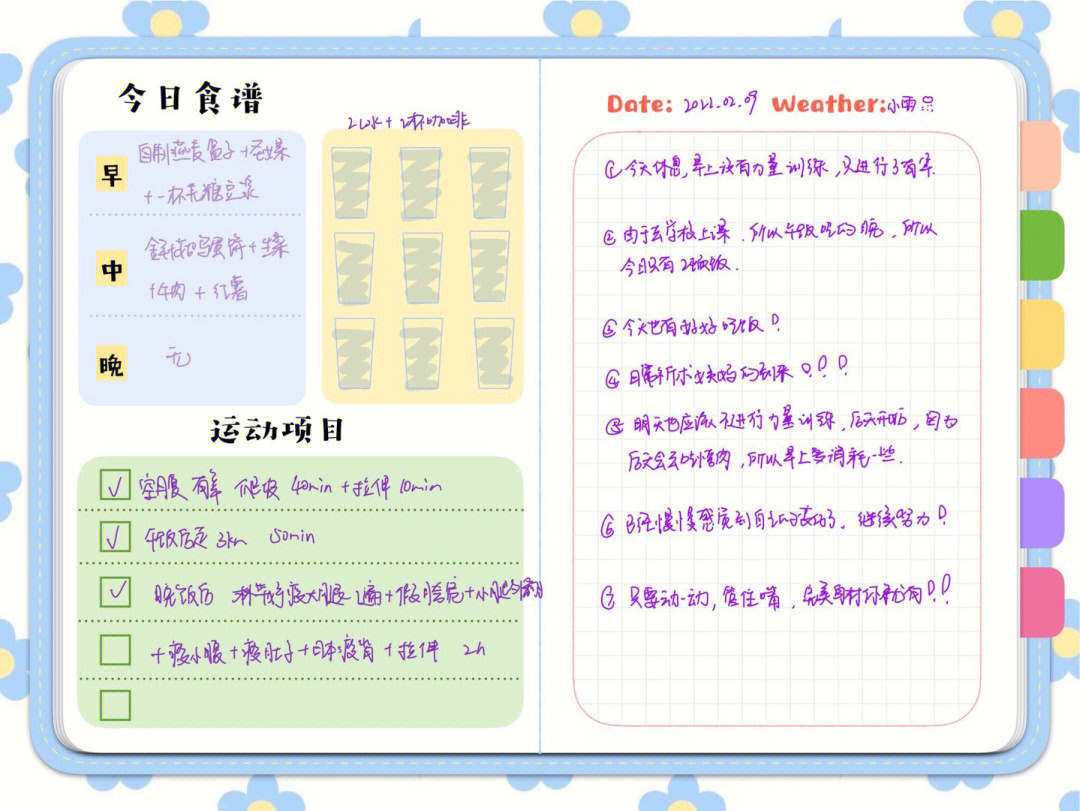 今日食谱
早
自制燕麦 +
+一杯无糖豆浆
中
蛋饼+生菜
+牛肉+红薯
晚
无
2L水+2杯咖啡
运动项目
空腹有氧 爬坡 40min +拉伸 10min
午饭后走 3km 50min
晚饭后 瘦大腿2遍+假胯宽+小腿
+瘦小腿+瘦肚子+日本瘦背+拉伸 2h
Date: 02.09 Weather:小雨
①今天休息,早上没有力量训练,只进行了有氧.
②由于去学校上课,所以午饭吃的晚,所以
今日只有2顿饭.
③今天也有好好吃饭!
④ 的到来!!!
⑤明天也应该不进行力量训练,后天开始,因为
后天会去吃烤肉,所以早上要消耗一些.
⑥已经慢慢感觉到自己的变化了,继续努力!
⑦只要动一动,管住嘴,完美身材你就有!!